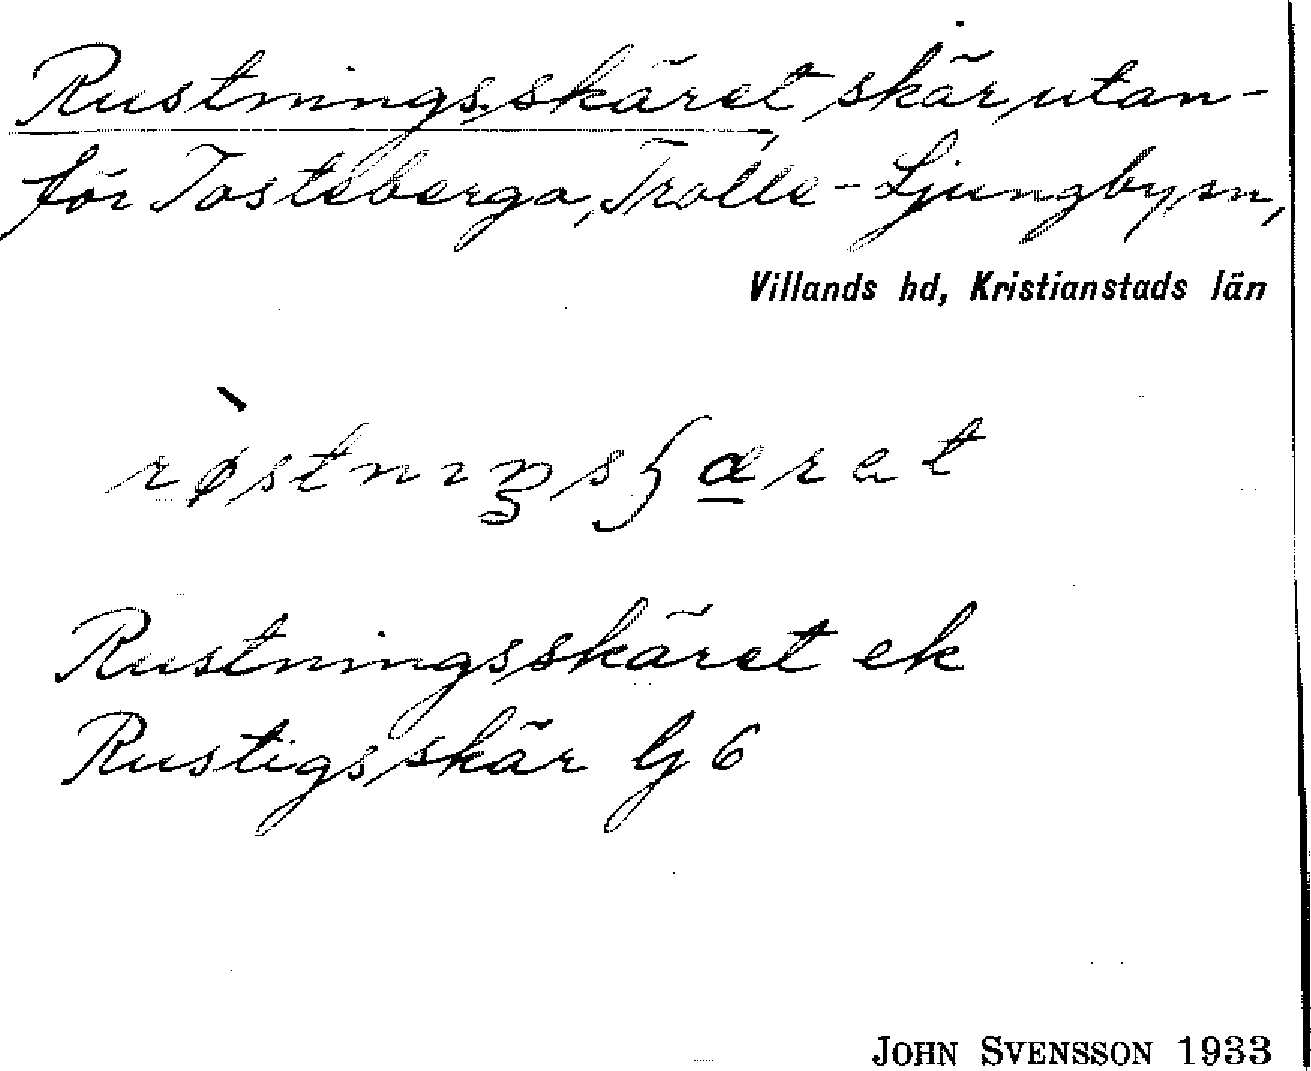 Rustningsskäret skär utan-
för Tosteberga, Trolle-Ljungby sn,
Villands hd, Kristianstads län
Rustningsskäret ek
Rustigsskär Gg 6
JOHN SVENSSON 1933